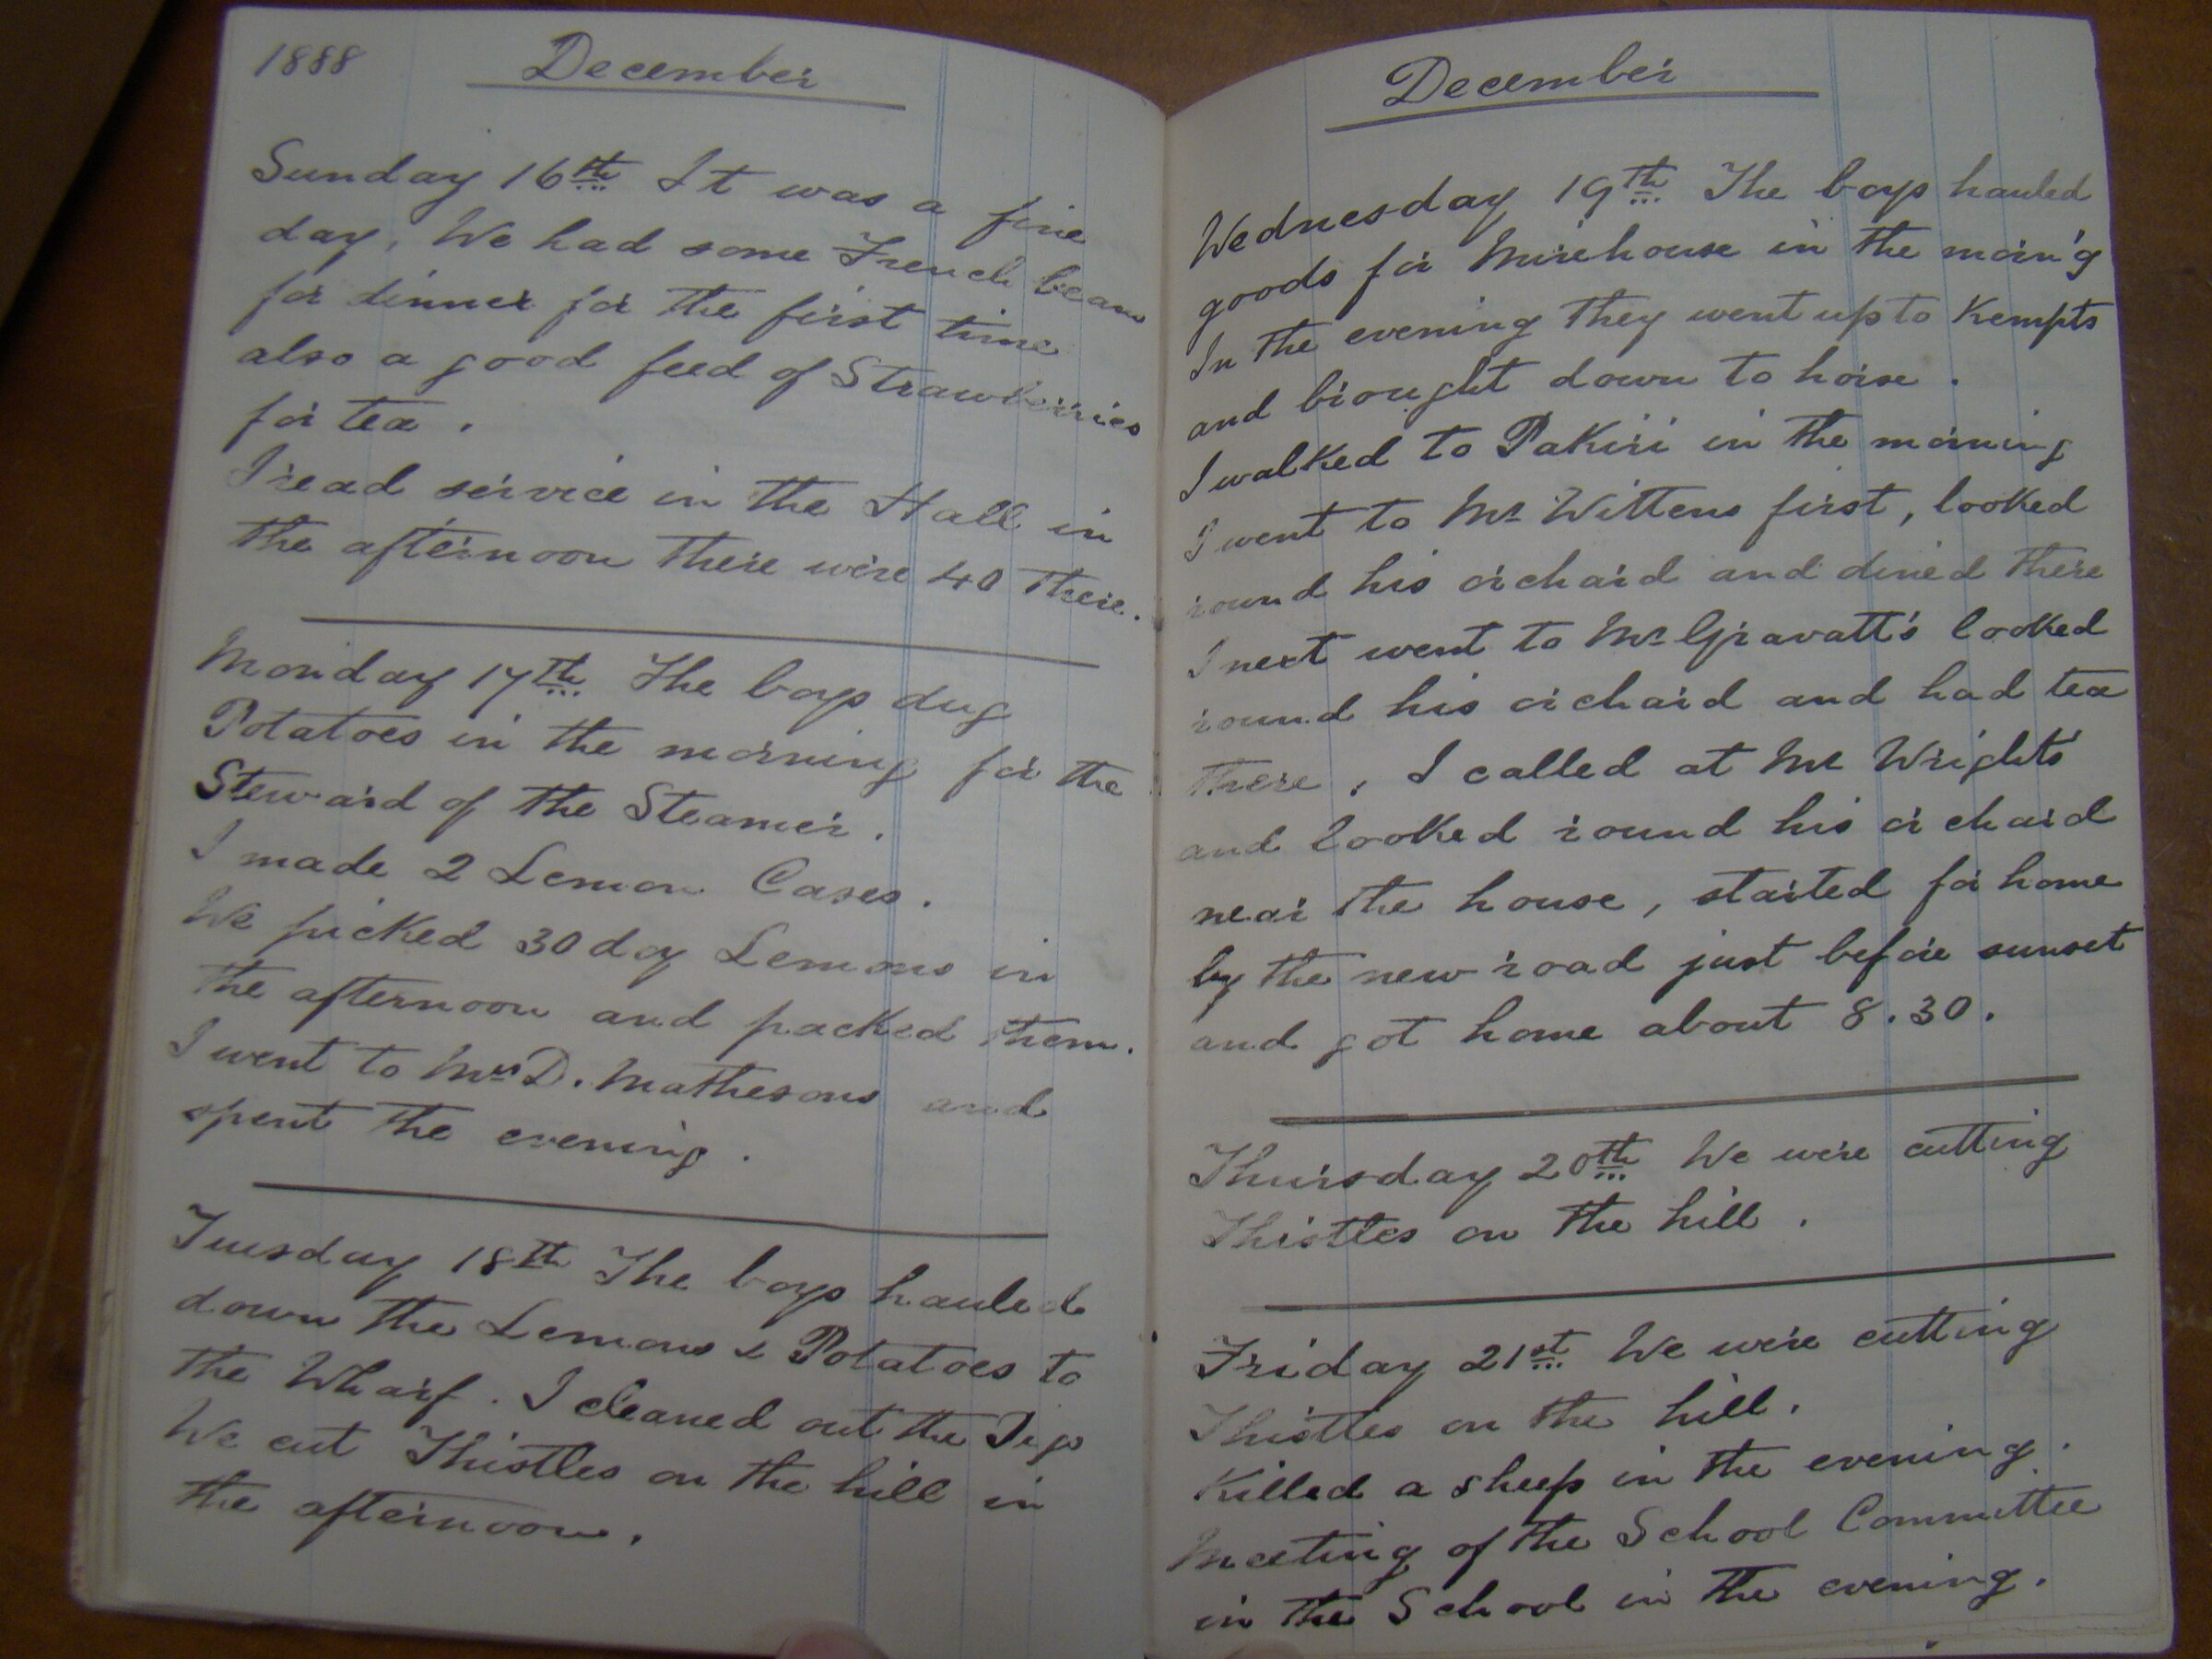 1888 December
Sunday 16th It was a fine
day, We had some French beans
for dinner for the first time
also a good feed of Strawberries
for tea.
I read service in the Hall in
the afternoon there were 40 there.
Monday 17th The boys dug
Potatoes in the morning for the
Steward of the Steamer.
I made 2 Lemon Cases.
We picked 30 doz Lemons in
the afternoon and packed them.
I went to Mrs D. Mathesons and
spent the evening.
Tuesday 18th The boys hauled
down the Lemons & Potatoes to
the Wharf. I cleaned out the
We cut Thistles on the hill in
the afternoon.
December
Wednesday 19th The boys hauled
goods for Mirehouse in the morn'g
In the evening they went up to Kempts
and brought down to horse.
I walked to Pakiri in the morning
I went to Mr Wittens first, looked
round his orchard and dined there
I next went to Mr Gravatt's looked
round his orchard and had tea
there, I called at Mr Wrights
and looked round his orchard
near the house, started for home
by the new road just before sunset
and got home about 8.30.
Thursday 20th We were cutting
Thistles on the hill.
Friday 21st We were cutting
Thistles on the hill.
Killed a sheep in the evening.
Meeting of the School Committee
in the School in the evening.